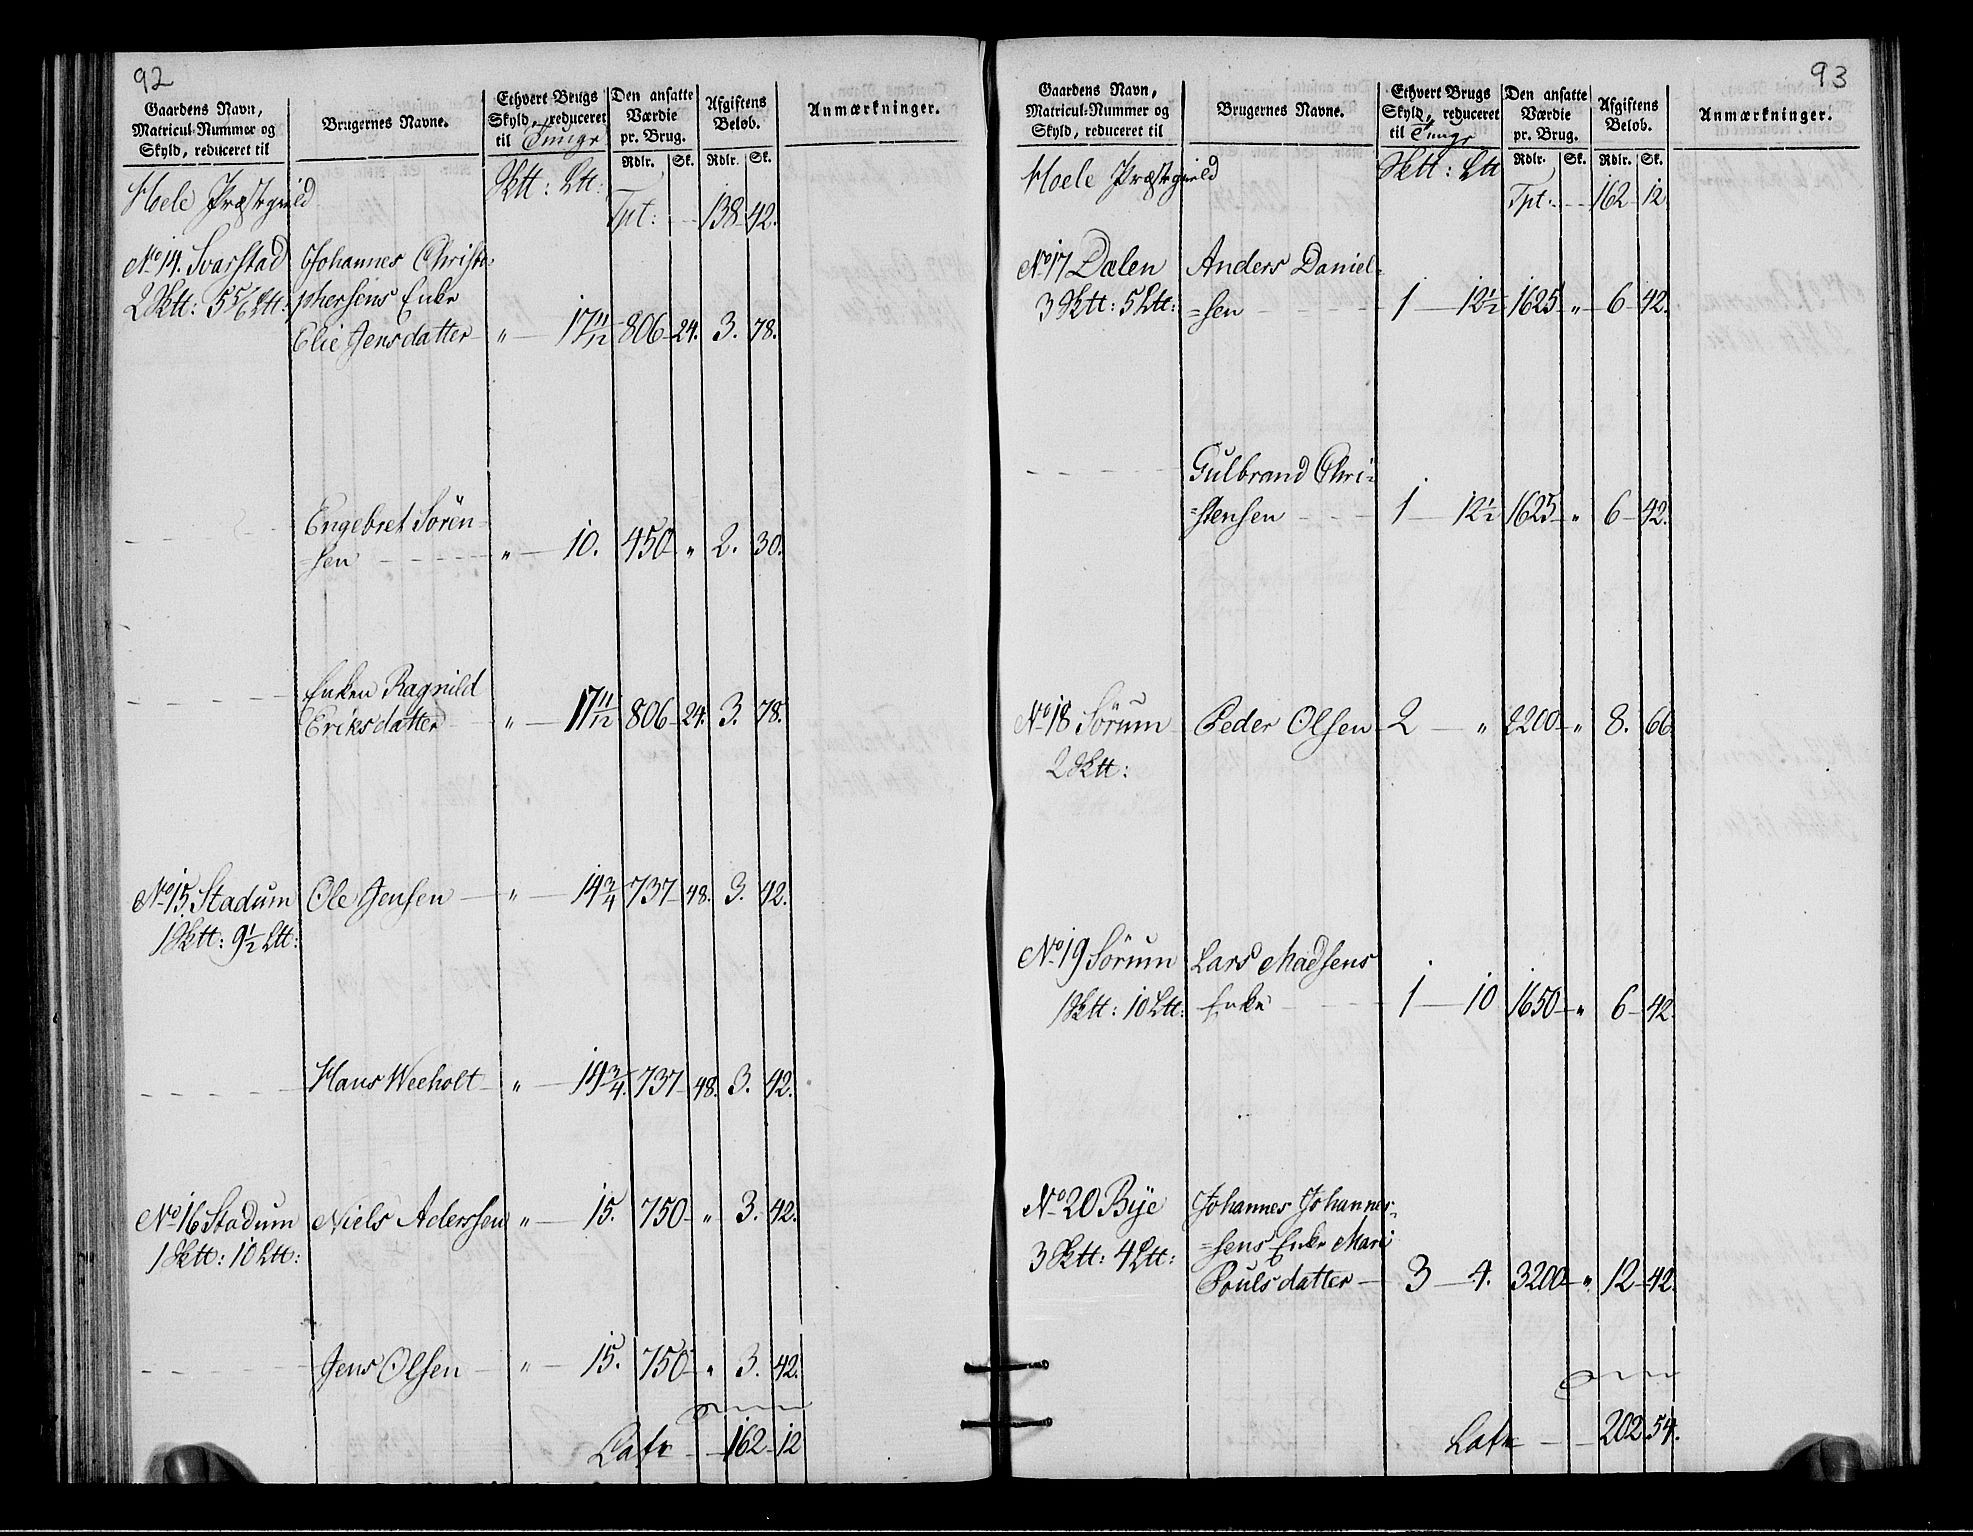 92
Gaardens Navn,
Matricul-Nummer og
Skyld, reduceret til
Brugernes Navne.
Ethvert Brugs
Skyld, reduceret
til Tunge
Den ansatte
Værdie
pr. Brug.
Rdlr. Sk.
Afgiftens
Beløb.
Rdlr. Sk.
Anmærkninger.
Hole Præstegield Sktt: Ltt: Tpt: 138 42.
No 14. Svarstad Johannes Christo-
2 Sktt: 5 5/6 Ltt: phersens Enke
Elie Jensdatter " 17 11/12 806 24. 3. 78.
Engebret Sören-
=sen " 10. 450 " 2. 30.
Enken Ragnild
Eriksdatter " 17 11/12 806 24. 3. 78.
No 15. Stadum Ole Jensen " 14 3/4 737 48. 3. 42.
1 Sktt: 9 1/2 Ltt:
Hans Weeholt " 14 3/4 737 48. 3. 42.
No 16 Stadum Niels Adersen " 15. 750 " 3. 42.
1 Sktt: 10 Ltt:
Jens Olsen " 15. 750 " 3. 42.
Lats 162 12
93
Gaardens Navn,
Matricul-Nummer og
Skyld, reduceret til
Brugernes Navne.
Ethvert Brugs
Skyld, reduceret
til Tunge
Den ansatte
Værdie
pr. Brug.
Rdlr. Sk.
Afgiftens
Beløb.
Rdlr. Sk.
Anmærkninger.
Hole Præstegield Sktt: Ltt Tpt. 162 12
No 17 Dælen Anders Daniel-
3 Sktt: 5 Ltt: =sen 1 12 1/2 1625 " 6 42.
Gulbrand Chri-
=stensen 1 12 1/2 1625 " 6 42.
No 18 Sörum Peder Olsen 2 " 2200 " 8. 66
2 Sktt:
No 19 Sörum Lars Madsens
1 Sktt: 10 Ltt: Enke 1 10 1650 " 6 42.
No 20 Bye Johannes Johannes-
3 Sktt: 4 Ltt: =sens Enke Mari
Poulsdatter 3 4. 3200 " 12 42.
Lats 202 54.